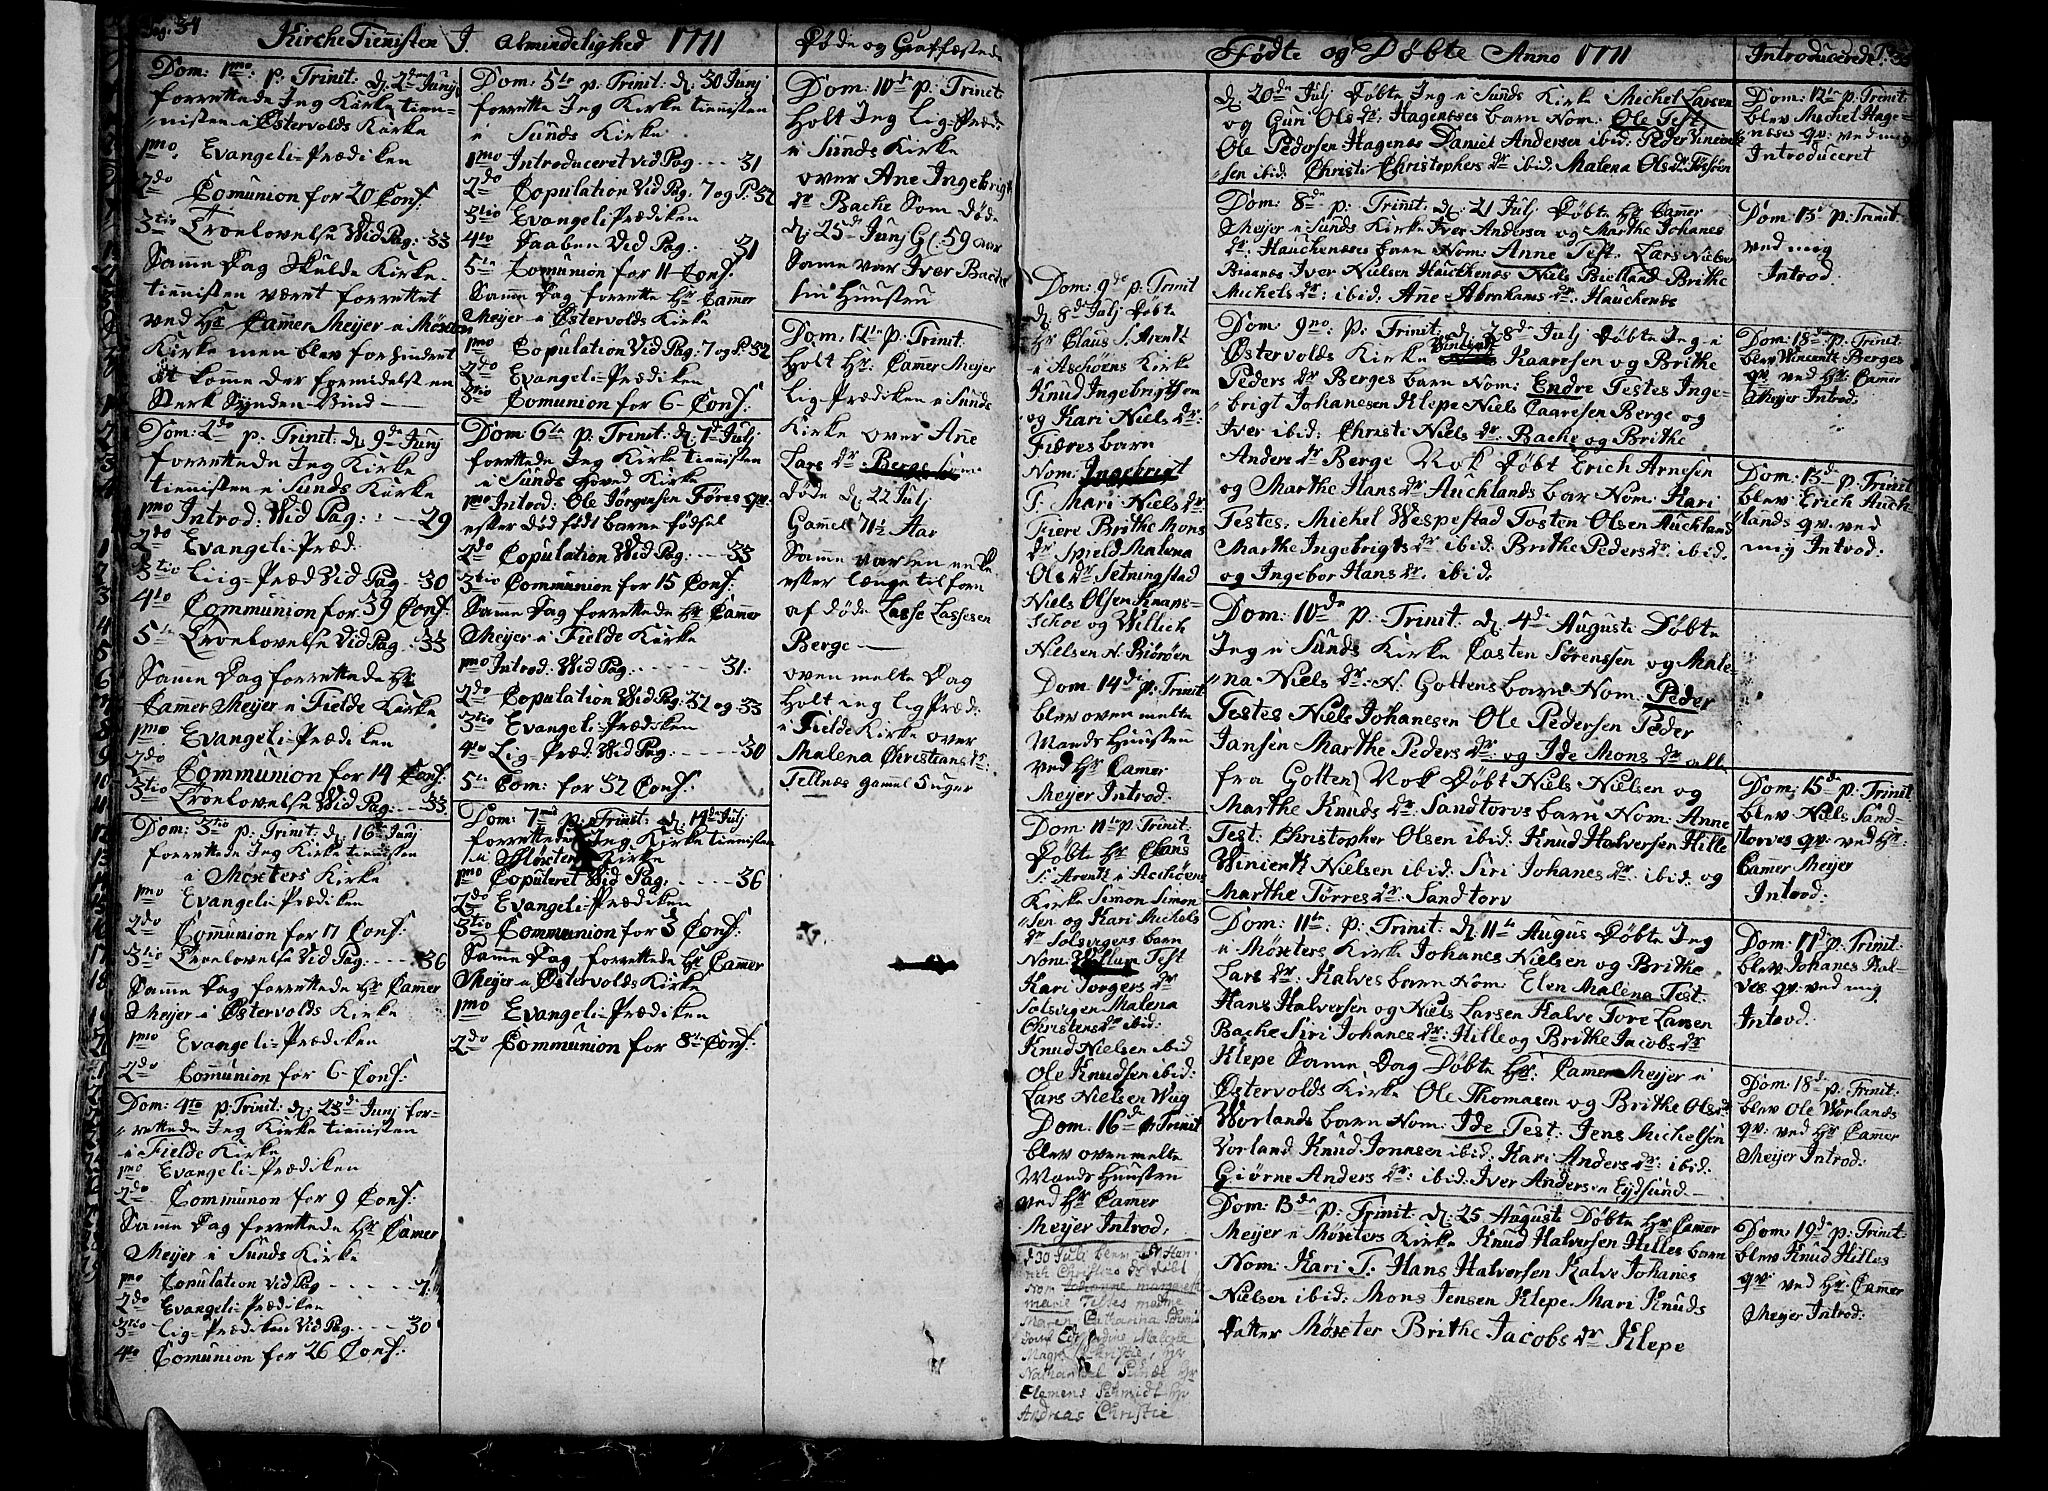 Pag. 34
Kirche Tiennisten J. almindelighed 1771
Dom: 1mo: p. Trinit: d. 2den Junj
forrettede Jeg Kirke tien-
nisten i Østervolds Kirke
1mo. Evangeli-Prædiken
2do Comunion for 20 Conf:
3tio Troelovelse Wid Pag: 33
Samme Dag skulde Kirke-
tienisten været forrettet
ved Hr Camer Meijer i Møxters
Kirke men blev forhindret
at komme der formidelst en
sterk Synden-Vind
Dom: 2do p. Trinit: d. 9de Junj
forrettede Jeg Kirke
tienisten i Sunds Kirke
1mo Introd: Wid Pag: - - 29
2do Evangeli-Præd.
3tio Liig-Præd Wid Pag - 30
4to Communion for 39 Conf:
5te Troelovelse Vid Pag: 33
Samme Dag forrettede Hr
Camer Meijer i Fielde Kirke
1mo Evangeli-Prædiken
2do Communion for 14 Conf:
3tio Troelovelse Wid Pag: - - 33
Dom: 3tio p. Trinit: d. 16de Junj
forrettede Jeg Kirke tiennisten
i Moxters Kirke
1mo Evangeli-Prædiken
2do Communion for 17 Conf:
3tio Troelovelse Vid Pag: - - - 36
Samme Dag forrettede Hr Camer
Meijer i Østervolds Kirke
1mo Evangeli-Prædiken
2do Communion for 6 Conf:
Dom: 4to p Trinit: d. 23de Junj for-
rettede Jeg Kirke tiennisten
i Fielde Kirke
1mo Evangeli-Prædiken
2do Communon for 9 Conf:
Samme Dag forrettede Hr Camer
Meijer i Sunds Kirke
1mo Copulation Vid Pag - - - - 7.
2do Evangeli-Prædiken
3tio Lig-Prædiken Vid Pag - - - 30
4to Comunion for 26 Conf:
Dom: 5te p: Trinit: d: 30 Junj
forrette Jeg Kirke tiennisten
i Sunds Kirke
1mo Introduceret Vid Pag - - - 31
2do Copulation Vid Pag: 7 og P. 32
3tio Evangeli-Prædiken
4to Daaben Vid Pag: 31
5te Comunion for 11 Conf:
Samme Dag forrette Hr Camer
Meijer i Østervolds Kirke
1mo Copulation Vid Pag: 7 og P. 32
2do Evangeli-Prædiken
3tio Comunion for 6 Conf:
Dom: 6te p: Trinit: d: 7de Julj
forrettede Jeg Kirke tiennisten
i Sunds Hoved Kirke
1mo Introd: Ole Jørgensen Føres qv:
efter død født barns fødsel
2do Copulation Wid Pag: - - - 33
3tio Communion for 15 Conf:
Samme Dag forrettede Hr Camer
Meijer i Fielde Kirke
1mo Introd: Wid Pag: - - - - - 31:
2do Copulation Wid Pag: 32 og 33
3tio Evangeli-Prædiken
4to Lig-Præd: Wid Pag: - - - - 30
5te Com: for 32 Conf:
Dom: 7mo p: Trinit: d: 14de Julj
forrettede Jeg Kirke tiennisten
i Møxters Kirke
1mo Copuleret Wid Pag: - - - - 36
2do Evangeli-Prædiken
3tio Communion for 3 Conf:
Samme Dag forrettede Hr Camer
Meijer i Østervolds Kirke
1mo Evangeli-Prædiken
2do Communion for 8te Conf:
Døde og Graffæstede
Dom: 10de p: Trinit:
Holt Jeg Lig-Præd:
i Sunds Kirke
over Ane Ingebrigts
dr Bache Som Døde
d: 25de Junj G: 59 aar
Same var Iver Baches
sin Huustru
Dom: 12te p: Trinit:
Holt Hr: Camer Meijer
Lig-Prædiken i Sunds
Kirke over Ane
Lars dr:
døde d. 22 Julj
Gammel 71½ Aar
Samme var en enke
efter længe til forn
af døde Lasse Lassesen
Berge
ovenmelte Dag
Holt jeg Lig Præd:
i Fielde Kirke over
Malena Christians dr:
Tellnæs gamel 5 uger
Dom: 9de p: Trinit
d: 8de Julj Døbte
Hr Claus S: Arentz
i Aschöens Kirke
Knud Ingebrigtsen
og Kari Niels dr:
Fieres barn
Nom: Ingebrigt
T. Mari Niels dr
Fiere Brithe Mons
dr Spield Malena
Ole dr Setningstad
Niels Olsen Knaps-
Schoe og Willich
Nielsen N: Biørøen
Dom: 14de p: Trinit
blev ovenmelte
Mands Huustru
ved Hr Camer
Meijer Introd:
Dom: 11te p: Trinit:
Døbte Hr Claus
S: Arentz i Aschöens
Kirke Simon Simon-
sen og Kari Michels
dr Solsvigens barn
Nom: Willum Test
Kari Torgers dr
Solsvigen Malena
Christens dr ibid:
Knud Nielsen ibid
Ole Knudsen ibid:
Lars Nielsen Wiig
Dom: 16de p: Trinit
blev ovenmelte
Mands Huustru
ved Hr Camer
Meijer Introd:
d 30 Juli blev
Christies dr døbt
Nom Johanne margarethe
marie Testes madme
Maren Catharina Schmi
Malene
Magrette Christie, Hr
Nathanael Hr
Clemens Schmidt Hr
Andreas Christie
Fødte og Døbte Anno 1771
d: 20de Julj Døbte Jeg i Sunds Kirke Michel Larsen
og Guri Ols dr: Hagenæses barn Nom: Ole Test
Ole Pedersen Hagenæs Daniel Andersen ibid: Peder
sen ibid: Christi Christophers dr ibid: Malena Ols dr
Dom: 8de p: Trinit: d: 21 Julj Døbte Hr Camer
Meijer i Sunds Kirke Iver Andersen og Marthe Johanes
dr: Hauchenæses barn Nom: Anne Test. Lars Nielsen
Biornæs Iver Nielsen Hauchenæs Niels Bielland Brithe
Michels dr: ibid: Ane Abrahams dr: Hauchenæs
Dom: 9no: p: Trinit: d: 28de Julj Døbte Jeg i
Østervolds Kirke Vincents Kaaresen og Brithe
Peders dr Berges barn Nom: Endre Testes Inge-
brigt Johanesen Klepe Niels Caaresen Berge og
Iver ibid: Christi Niels dr Bache og Brithe
Anders dr Berge Nok Døbt Erich Arnesen
og Marthe Hans dr Aucklands bar Nom: Kari
Testes: Michel Wespestad Tosten Olsen Auckland
Marthe Ingebrigts dr ibid: Brithe Peders dr ibid:
og Ingebor Hans dr. ibid.
Dom: 10de p: Trinit: d: 4de Augusti Døbte
Jeg i Sunds Kirke Casten Sørenssen og Male-
na Niels dr: N: Gottens barn Nom: Peder
Testes Niels Johanesen Ole Pedersen Peder
Jansen Marthe Peders dr: og Ide Mons dr alle
fra Gotten) Nok Døbt Niels Nielsen og
Marthe Knuds dr Sandtorvs barn Nom: Anne
Test: Christopher Olsen ibid: Knud Halversen Hille
Winientz Nielsen ibid: Siri Johanes dr. ibid: og
Marthe Torres dr: Sandtorv
Dom: 11te: p: Trinit: d: 11te Augus Døbte Jeg
i Møxters Kirke Johanes Nielsen og Brithe
Lars dr: Kalves barn Nom: Elen Malena Test:
Hans Halversen og Niels Larsen Kalve Tore Larsen
Bache Siri Johanes dr: Hille og Brithe Jacobs dr
Klepe Same Dag Døbte Hr: Camer Meijer i
Østervolds Kirke Ole Thomasen og Brithe Ols dr
Worlands barn Nom: Ide Test: Jens Michelsen
Vorland Knud Jonnsen ibid: Kari Anders dr: ibid:
Giørne Anders dr: ibid: Iver Andersen Eydsund
Dom: 13de p: Trinit: d: 25 Augusti Døbte Hr Camer
Meijer i Møxters Kirke Knud Halversen Hilles barn
Nom: Kari T. Hans Halversen Kalve Johanes
Nielsen ibid: Mons Jensen Klepe Mari Knuds
Datter Møxter Brithe Jacobs dr Klepe
Introducerede P. 35
Dom: 12te p: Trinit:
blev Michel Hage-
næses qv: ved mig
Introduceret
Dom: 15de p: Trinit:
ved mig
Introd.
Dom: 18de p: Trinit:
blev Wincentz Berges
qv: ved Hr Camer
Meijer Introd:
Dom: 13de p: Trinit
blev Erich Auch-
lands qv: ved
mig Introd:
Dom: 15de p: Trinit
blev Niels Sand-
torves qv: ved Hr:
Camer Meijer
Introd:
Dom: 17de p: Trinit:
blev Johanes Kal-
ves qv: ved mig
Introd:
Dom: 18de p: Trinit:
blev Ole Worlands
qv: ved Hr Camer
Meijer Introd:
Dom: 19de p: Trinit:
blev Knud Hilles
qv: ved Hr Camer
Meijer Introd: